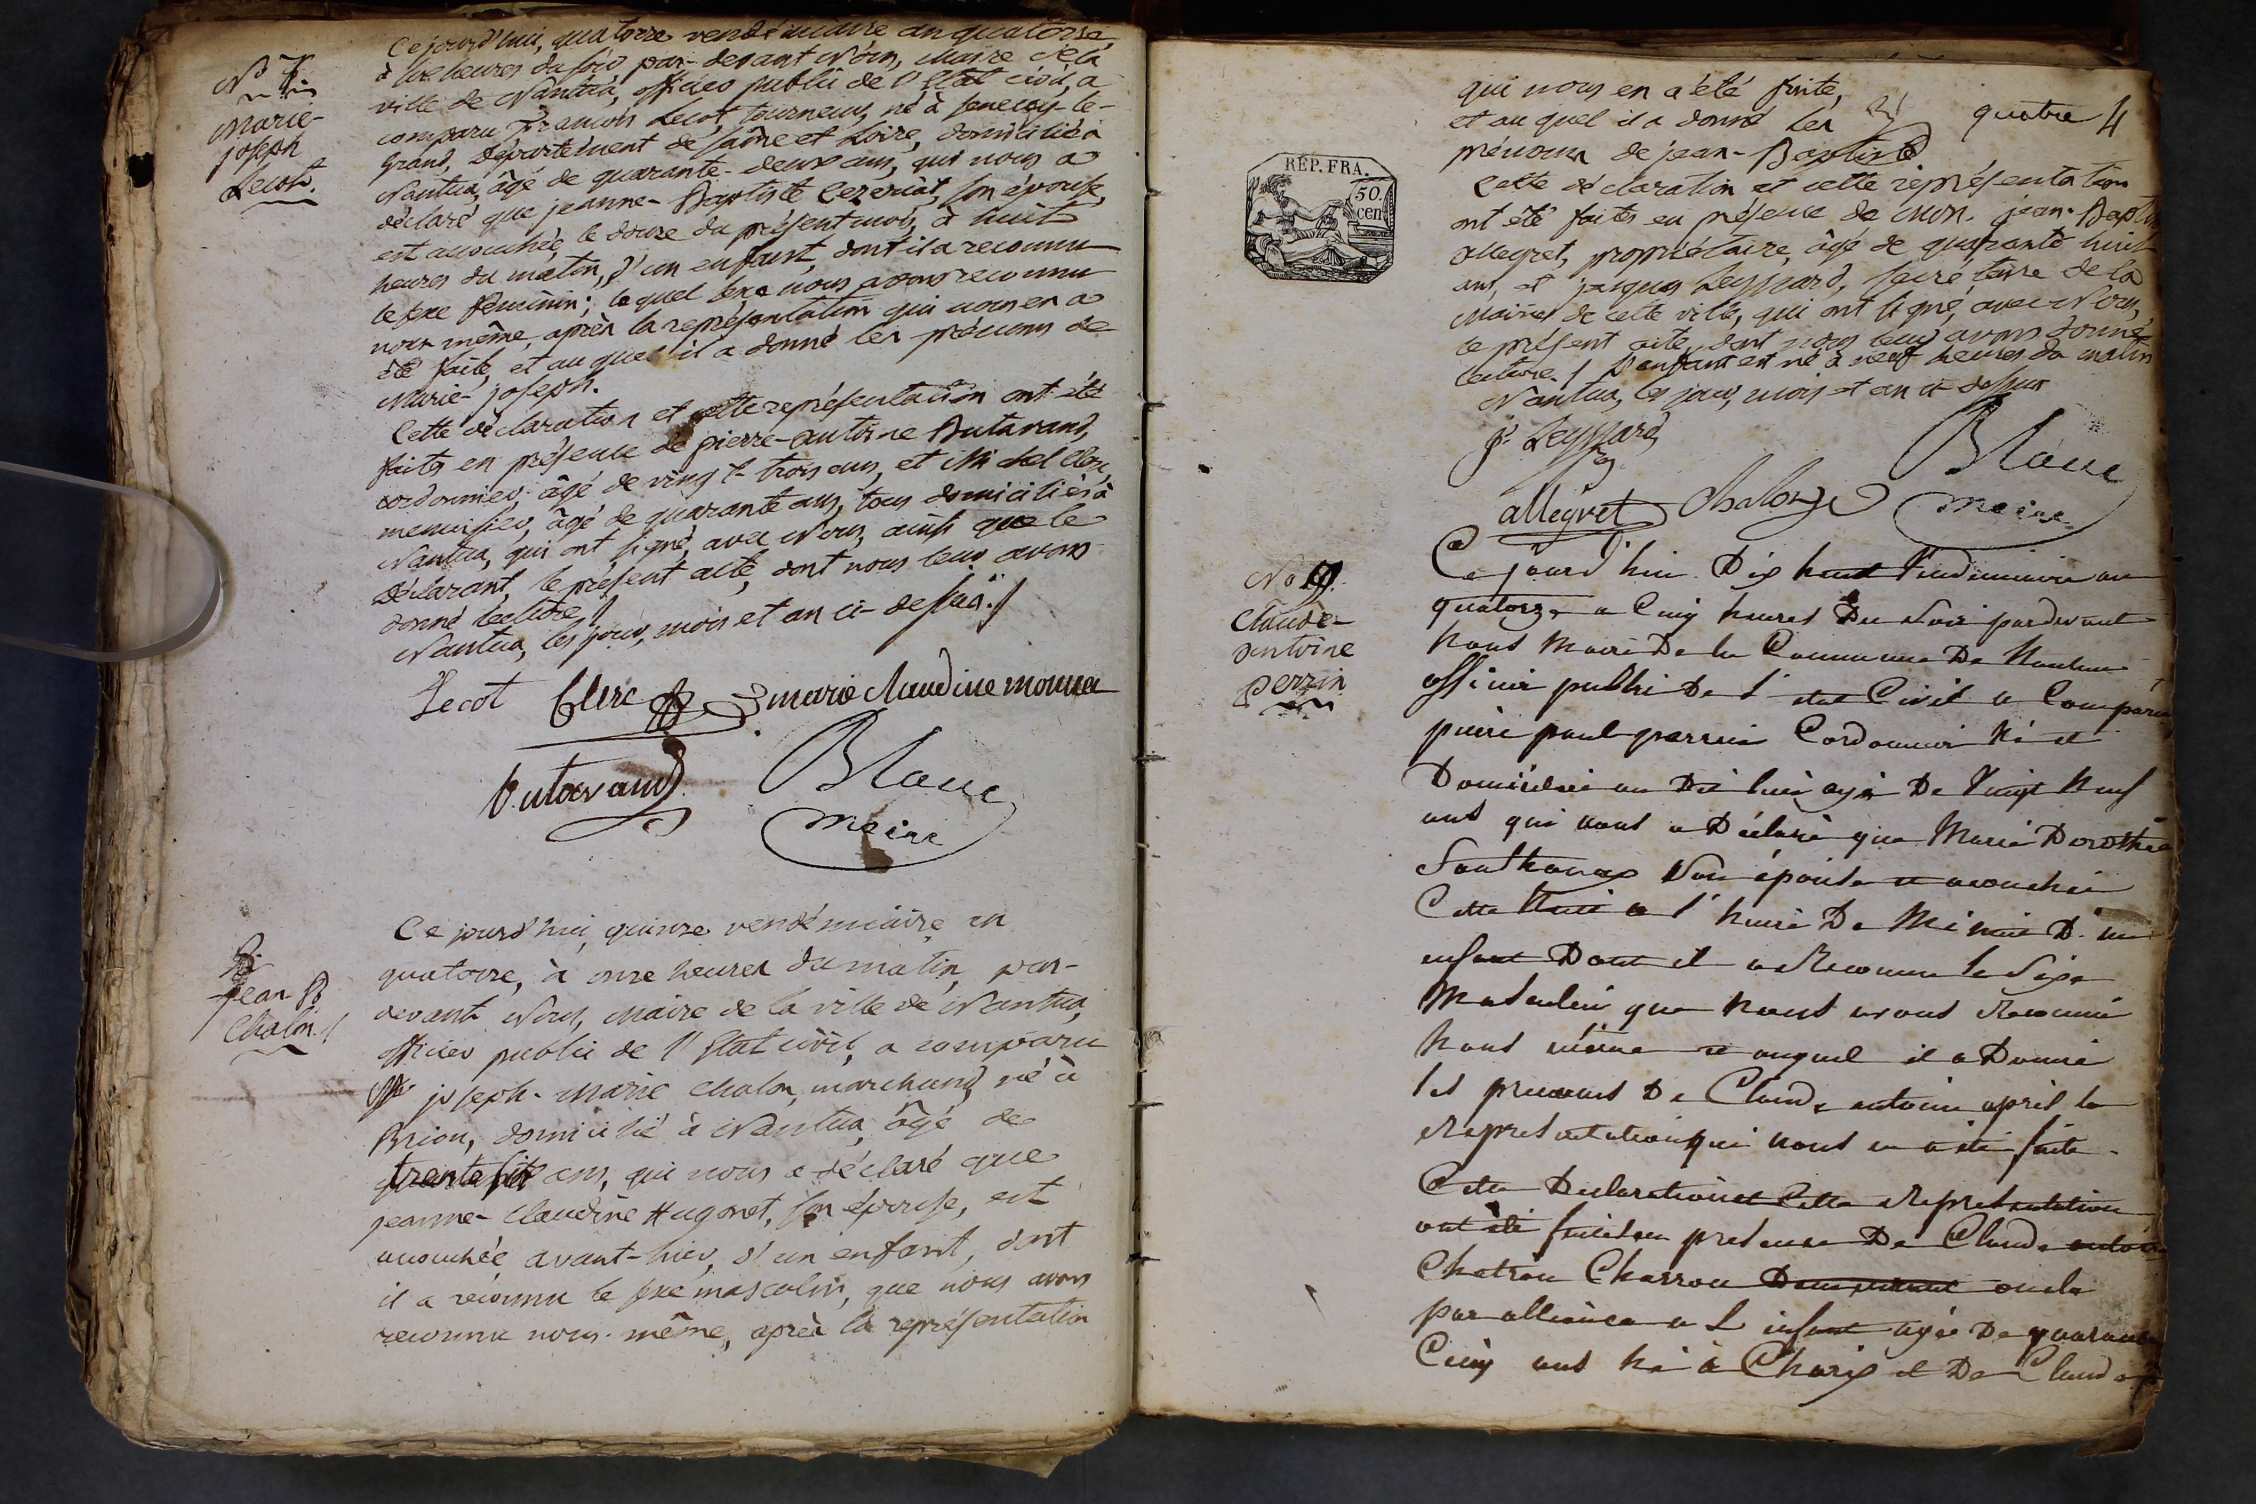 N° 7
Marie-
joseph
Lecot.
Ce jourd'hui, quatorze vendémiaire an quatorze,
à heures du soir par-devant Nous, Maire de la
ville de Nantua, officier public de l'Etat civil, a
comparu François Lecot, tourneur, né à Senecey-le-
grand, département de Saône et Loire, domicilié à
Nantua, âgé de quarante-deux ans, qui nous a
déclaré que jeanne-Baptiste Cezeriat, son épouse,
est accouchée, le douze du présent mois, à huit
heures du matin, d'un enfant, dont il a reconnu
le sexe féminin; lequel sexe nous avons reconnu
nous même, après la représentation qui nous en a
été faite, et auquel il a donné les prénoms de
Marie-joseph.
Cette déclaration et cette représentation ont été
faites en présence de pierre-antoine Butavand,
cordonnier, âgé de vingt-trois ans, et Michel Clerc,
menuisier, âgé de quarante ans, tous domiciliés à
Nantua, qui ont signé, avec Nous, ainsi que le
déclarant, le présent acte, dont nous leur avons
donné lecture./
Nantua, les jour, mois et an ci-dessus./
Lecot Clerc marie claudine monnet
Butavand Blanc
maire
8.
Jean B
Chalon./
Ce jourd'hui, quinze vendémiaire an
quatorze, à onze heures du matin, par-
devant Nous, Maire de la ville de Nantua,
officier public de l'Etat civil, a comparu
joseph-Marie Chalon, marchand, né à
Brion, domicilié à Nantua, âgé de
trente ans, qui nous a déclaré que
jeanne-Claudine Hugonet, son épouse, est
accouchée avant-hier, d'un enfant, dont
il a reconnu le sexe masculin, que nous avons
reconnu nous-même, après la représentation
quatre 4
RÉP. FRA.
50.
cen
qui nous en a été faite,
et auquel il a donné les
prénoms de jean-Baptiste
Cette déclaration et cette représentation
ont été faites en présence de jean-Baptiste
allegret, propriétaire, âgé de quarante huit
ans, et jacques Leyssard, secrétaire de la
Mairie de cette ville, qui ont signé, avec Nous,
le présent acte, dont nous leur avons donné
lecture./ L'enfant est né à neuf heures du matin
Nantua, les jour, mois et an ci dessus
j. Leyssard Blanc
allegret Chalon maire
No 9.
Claude-
antoine
perrin
Ce jourd'hui Dix huit Vendemiaire an
quatorze a Cinq heures Du Soir pardevant
Nous Maire De la Commune De Nantua
officier public De l'etat Civil a Comparu
pierre paul perrin Cordonnier Né et
Domicilié au Dit lieu agé De Vingt Neuf
ans qui nous a Déclaré que Marie Dorothée
Sonthonax Son épouse a accouché
Cette Nuit a l'heure De Minuit D'un
enfant Dont il a Reconnu le Sexe
Masculin que Nous avons Reconnu
Nous même et auquel il a Donné
les prenoms De Claude antoine après la
Representation qui nous en a été faite.
Cette Declaration et Cette Representation
ont été faites en presence De Claude antoine
Chatron Charron Demeurant oncle
par alliance a L'enfant agé De quarante
Cinq ans né à Charix et De Claude